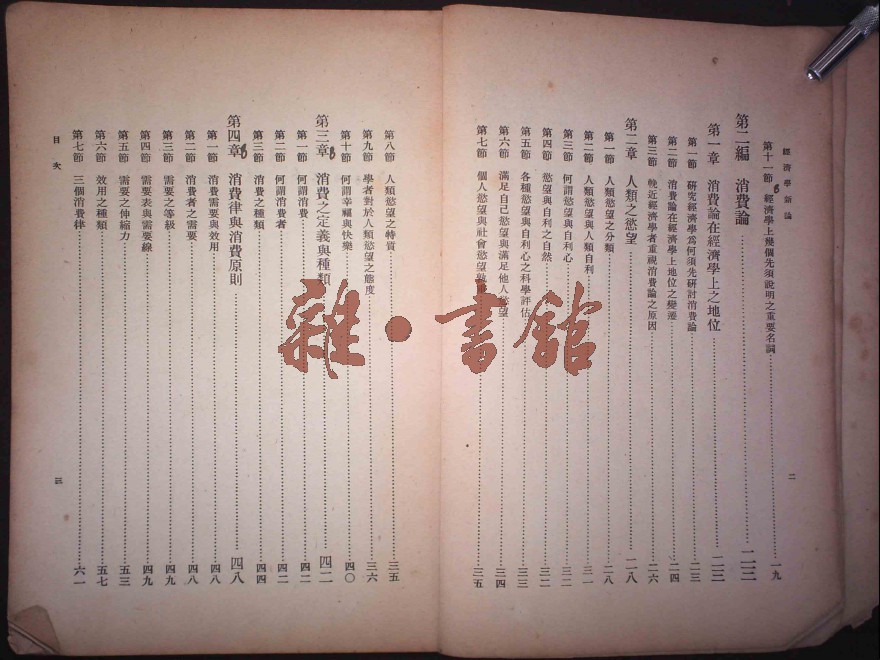 經濟學新論
二
第十一節 經濟學上幾個先須說明之重要名詞 一九
第二編 消費論 二二
第一章 消費論在經濟學上之地位 二三
第一節 研究經濟學爲何須先研討消費論 二三
第二節 消費論在經濟學上地位之變遷 二四
第三節 輓近經濟學者重視消費論之原因 二六
第二章 人類之慾望 二八
第一節 人類慾望之分類 二八
第二節 人類慾望與人類自利 三一
第三節 何謂慾望與自利心 三二
第四節 慾望與自利之自然 三二
第五節 各種慾望與自利心之科學評估 三三
第六節 滿足自己慾望與滿足他人慾望 三四
第七節 個人慾望與社會慾望 三五
第八節 人類慾望之特質 三五
第九節 學者對於人類慾望之態度 三六
第十節 何謂幸福與快樂 四〇
第三章 消費之定義與種類 四二
第一節 何謂消費 四二
第二節 何謂消費者 四二
第三節 消費之種類 四四
第四章 消費律與消費原則 四八
第一節 消費需要與效用 四八
第二節 消費者之需要 四八
第三節 需要之等級 四九
第四節 需要表與需要線 四九
第五節 需要之伸縮力 五三
第六節 效用之種類 五七
第七節 三個消費律 六一
目次
三
雜·書館